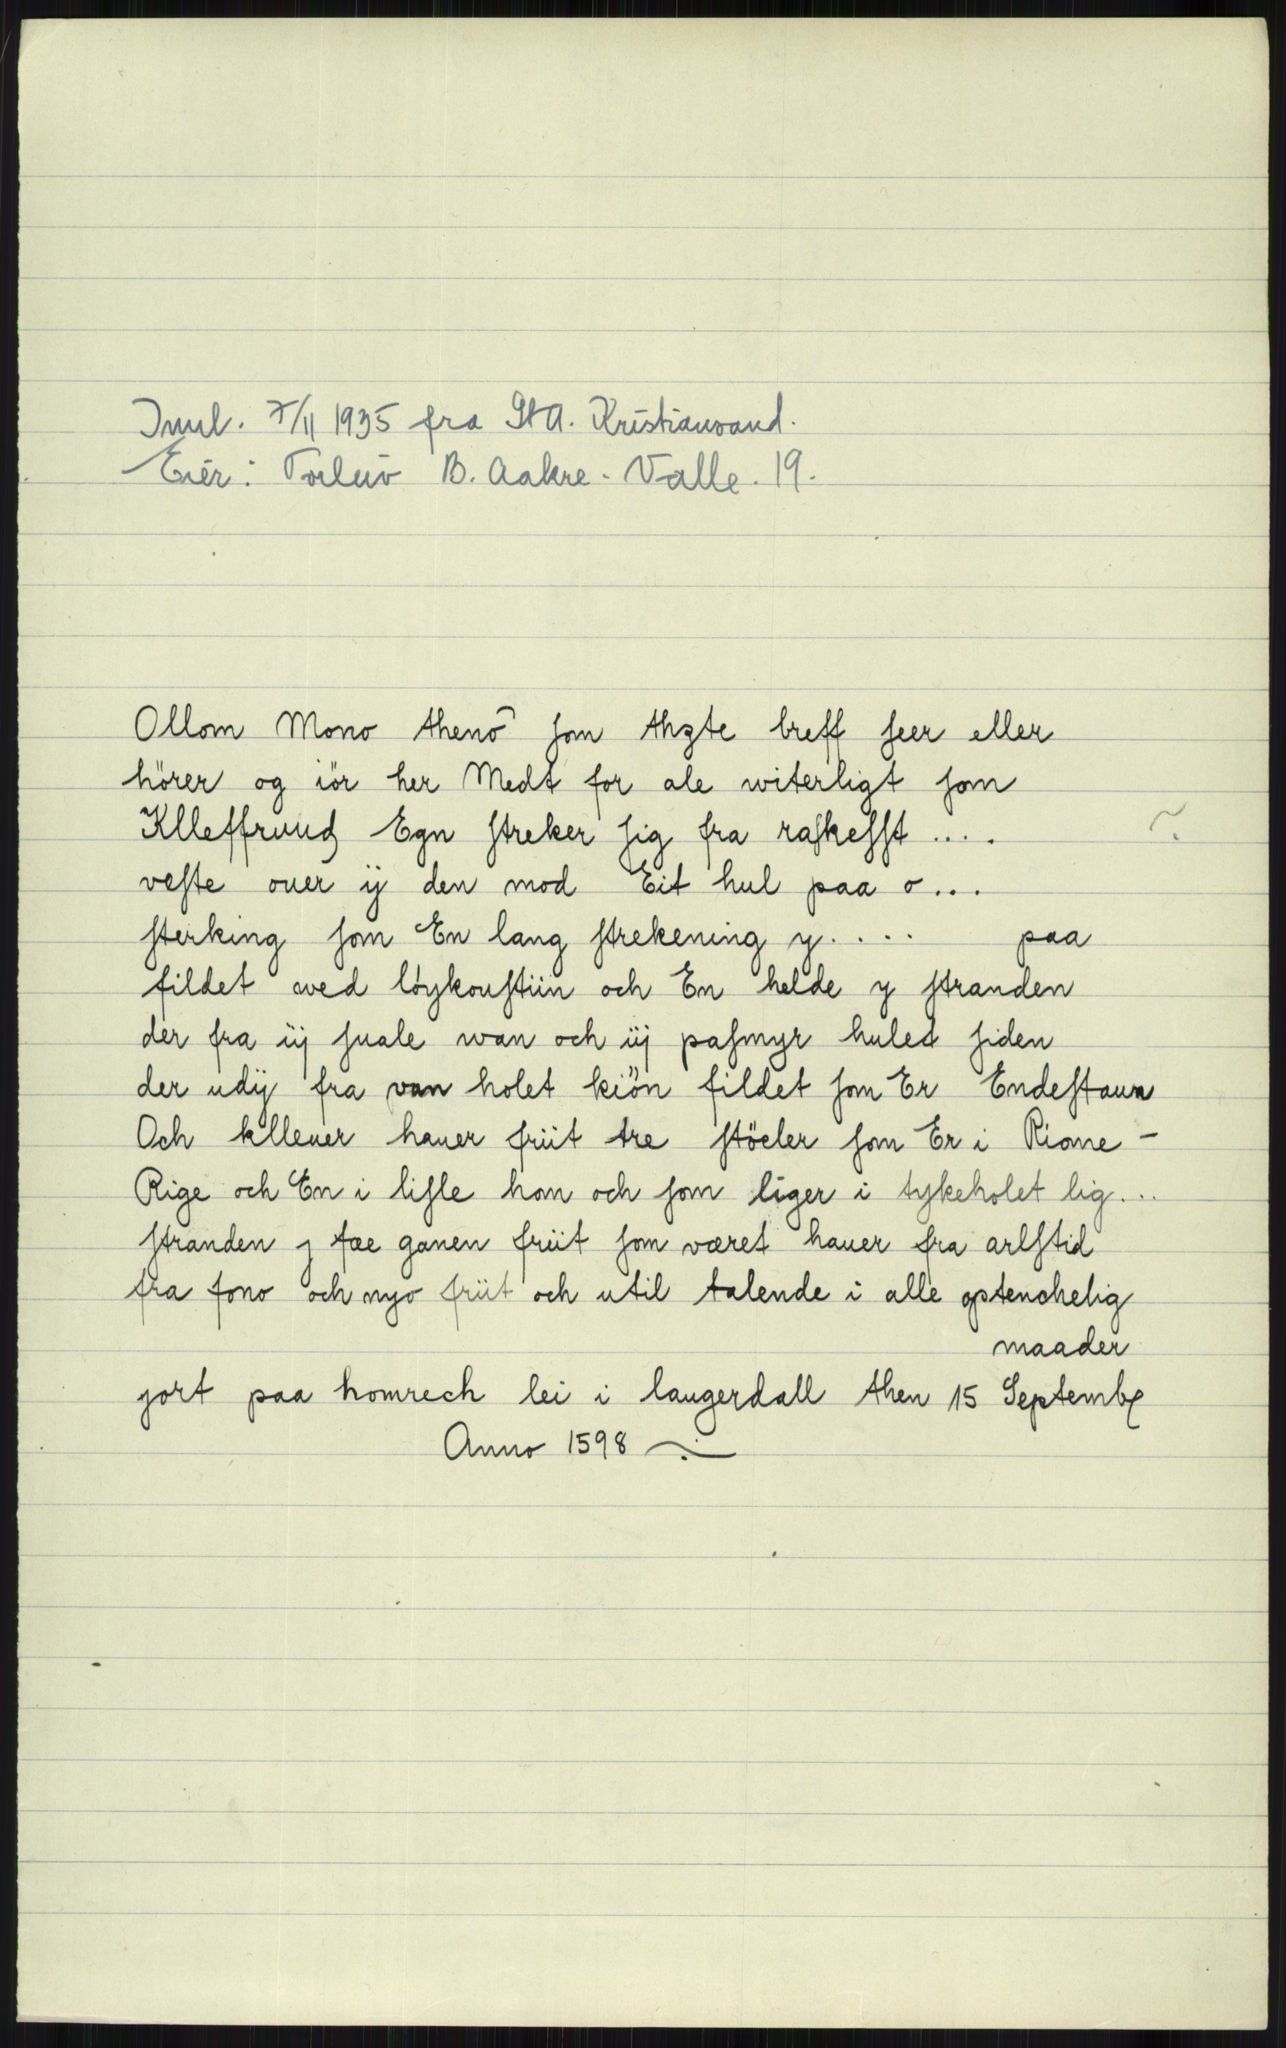 Innl. 7/11 1935 fra St A. Kristiansand.
Eier: Torleiv B. Aakre - Valle. 19.
Ollom Mono thenō som thzte breff seer eller
hörer og iör her Medt for ale witerligt som
Klleffruud Egn streker sig fra raskefft ....
veste ouer ij den mod Eit hul paa o...
sterking som En lang strekening y.... paa
fildet wed löykoustiin och En helde y stranden
der fra iij suale wan och iij pasmyr huled siden
der udij fra van holet kiön fildet som Er Endestaun
Och kllever hauer friit tre stöeler som Er i Riome-
Rige och En i lisle hom och som liger i tykeholet lig...
stranden j fæ ganen friit som været hauer fra arlstid
fra fono och nyo friit och util talende i alle optenchelig
maader
jort paa homrech lei i laugerdall then 15 Septemb
Anno 1598